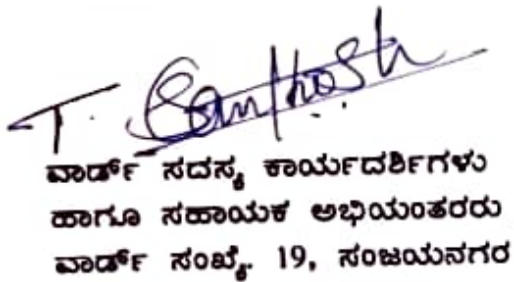 T. Santhosh
ವಾರ್ಡ್ ಸದಸ್ಯ ಕಾರ್ಯದರ್ಶಿಗಳು
ಹಾಗೂ ಸಹಾಯಕ ಅಭಿಯಂತರರು
ವಾರ್ಡ್ ಸಂಖ್ಯೆ. 19, ಸಂಜಯನಗರ